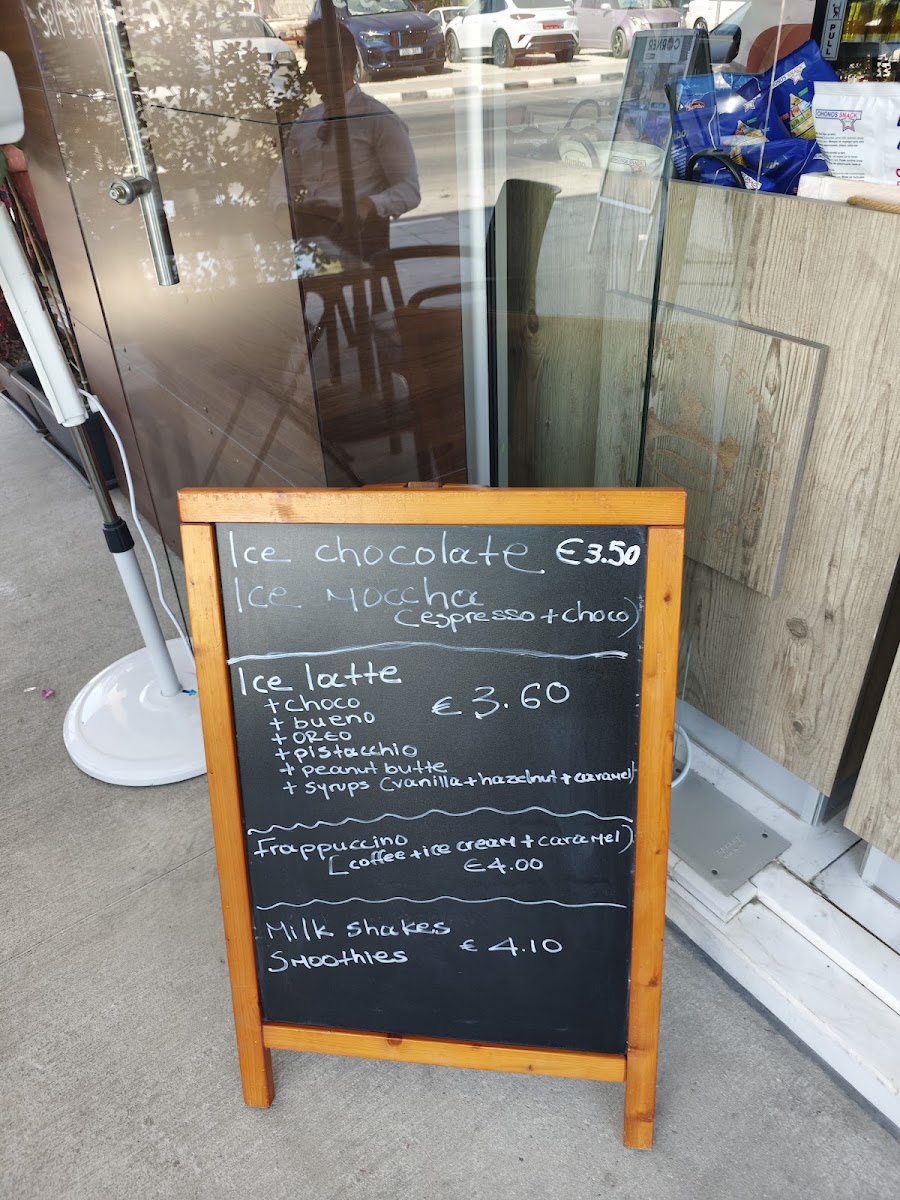 PULL
CORNER
OHONOS SNACK
Ice chocolate €3.50
Ice Moccha
(espresso + choco)
Ice latte
€ 3.60
+ choco
+ bueno
+ OREO
+ pistacchio
+ peanut butte
+ syrups (vanilla + hazelnut + caramel)
Frappuccino
[coffee + ice cream + caramel)
€4.00
Milk shakes
Smoothies
€ 4.10